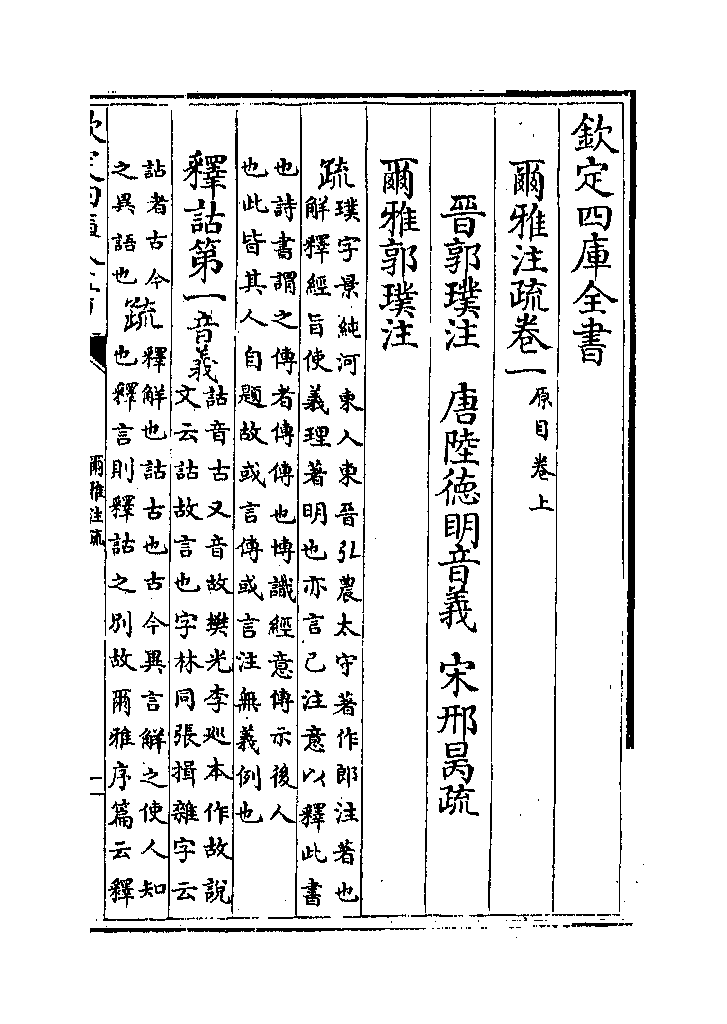 欽定四庫全書
爾雅注疏卷一 原目卷上
晉郭璞注 唐陸德明音義 宋邢昺疏
爾雅郭璞注
疏 璞字景純河東人東晉弘農太守著作郎注著也
解釋經旨使義理著明也亦言己注意以釋此書
也詩書謂之傳者傳傳也博識經意傳示後人
也此皆其人自題故或言傳或言注無義例也
釋詁第一 音義 詁音古又音故樊光李廵本作故說
文云詁故言也字林同張揖雜字云
詁者古今
之異語也 疏 釋解也詁古也古今異言解之使人知
也釋言則釋詁之別故爾雅序篇云釋
欽定四庫全書
爾雅注疏
一